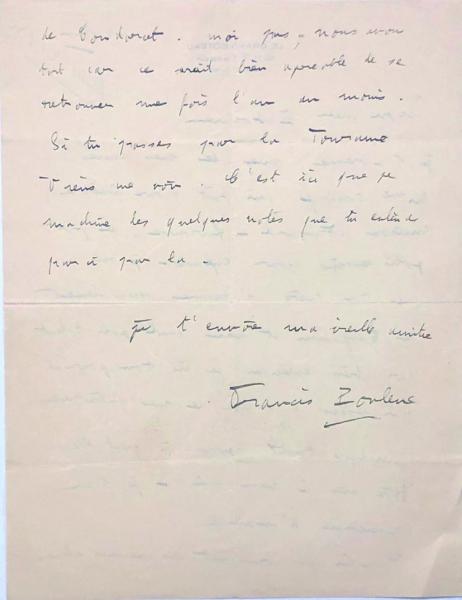 de Condorcet. moi pas, nous avons
tort car ce serait bien agréable de se
retrouver une fois l'an au moins.
Si tu passes par la Touraine
Viens me voir. C'est ici que je
machine les quelques notes que tu entends
par ci par la.
je t'envoie ma vieille amitié
Francis Poulenc